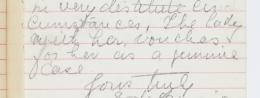 in very destitute cir
cumstances, The lady
with her, vouches
for her as a genuine
case
Yours truly